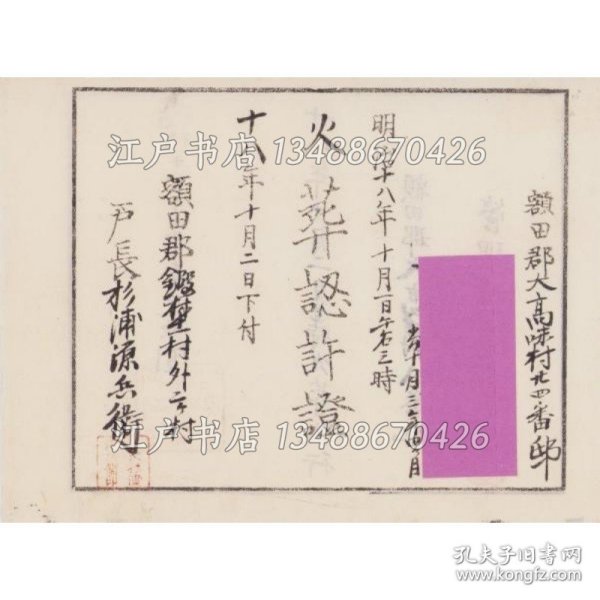 額田郡大高味村廿四番邸
十月三
月
明治十八年十月一日午后三時
火葬認許證
十八年十月二日下付
額田郡鍛埜村外三ヶ村
戸長杉浦源兵衛
江户书店 13488670426
江户书店 13488670426
孔夫子旧书网
www.kongfz.com